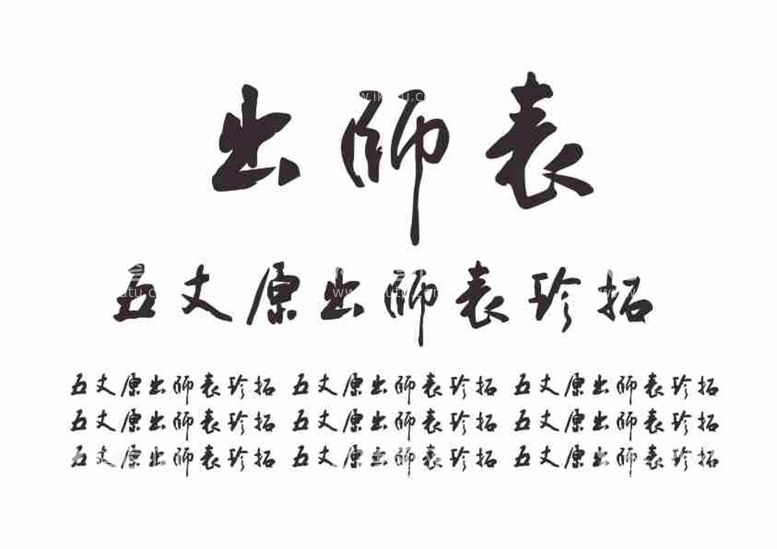 出師表
五丈原出師表珍拓
五丈原出師表珍拓 五丈原出師表珍拓 五丈原出師表珍拓
五丈原出師表珍拓 五丈原出師表珍拓 五丈原出師表珍拓
五丈原出師表珍拓 五丈原出師表珍拓 五丈原出師表珍拓